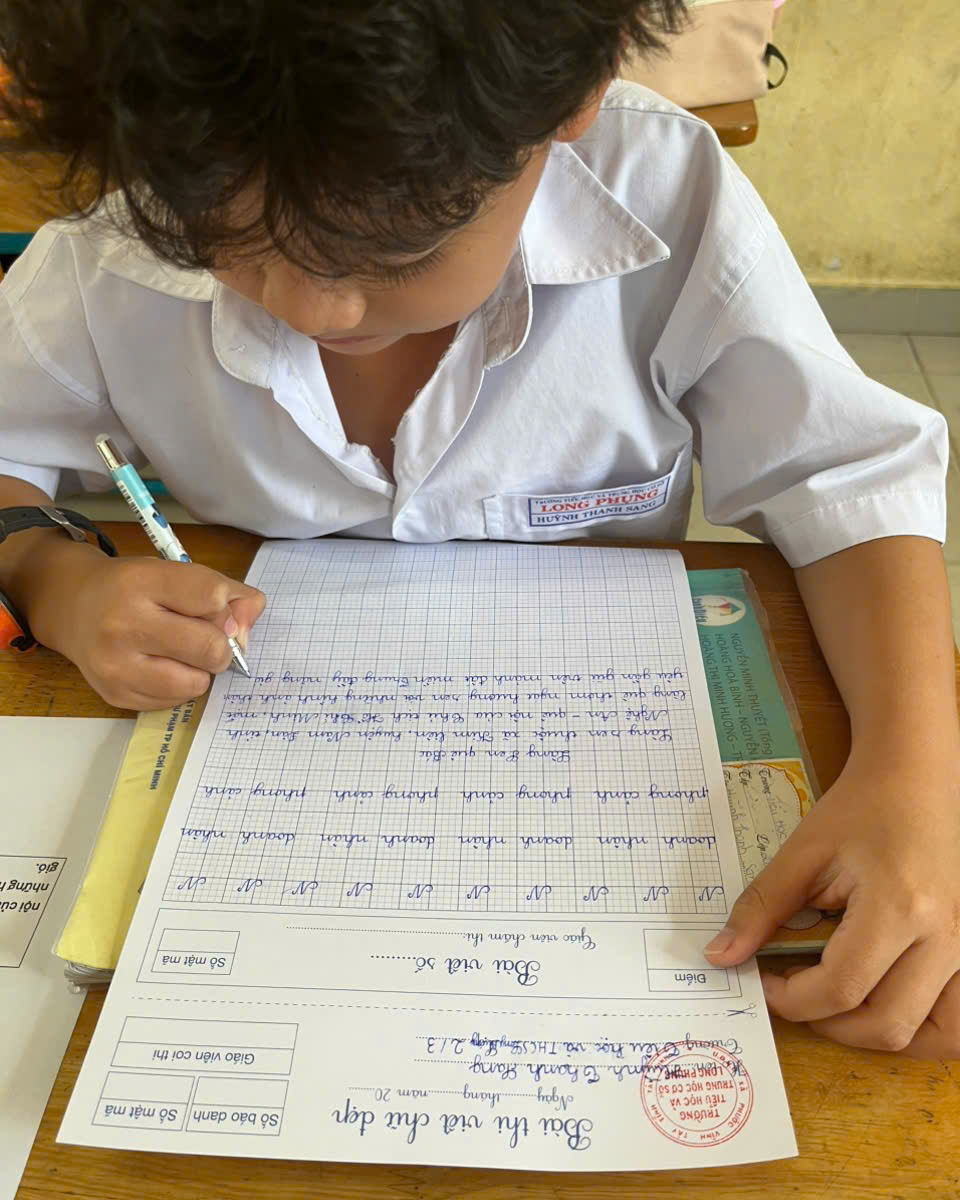 TRƯỜNG TIỂU HỌC VÀ TRUNG HỌC CƠ SỞ
LONG PHỤNG
HUỲNH THANH SANG
Bài thi viết chữ đẹp
Ngày......tháng......năm 20......
Huỳnh Thanh Sang
Trường Tiểu học và THCS Long Phụng 2/3
TRƯỜNG
TIỂU HỌC VÀ
TRUNG HỌC CƠ SỞ
LONG PHỤNG
Số báo danh
Số mật mã
Giáo viên coi thi
Điểm
Bài viết số
Giáo viên chấm thi:
Số mật mã
N N N N N N N N N
doanh nhân doanh nhân doanh nhân doanh nhân
phong cảnh phong cảnh phong cảnh phong cảnh
Làng Sen quê Bác
Làng Sen thuộc xã Kim Liên, huyện Nam Đàn, tỉnh
Nghệ An - quê nội của Chủ tịch Hồ Chí Minh, một
làng quê thơm ngát hương sen với những hình ảnh thân
yêu gần gũi trên mảnh đất miền Trung đầy nắng gió
NGUYỄN MINH THUYẾT (Tổng
HOÀNG HOÀ BÌNH - NGUYỄN
HOÀNG THỊ MINH HƯƠNG - T
Trường
Lớp
SƯ PHẠM TP HỒ CHÍ MINH
nội của
những h
gió.